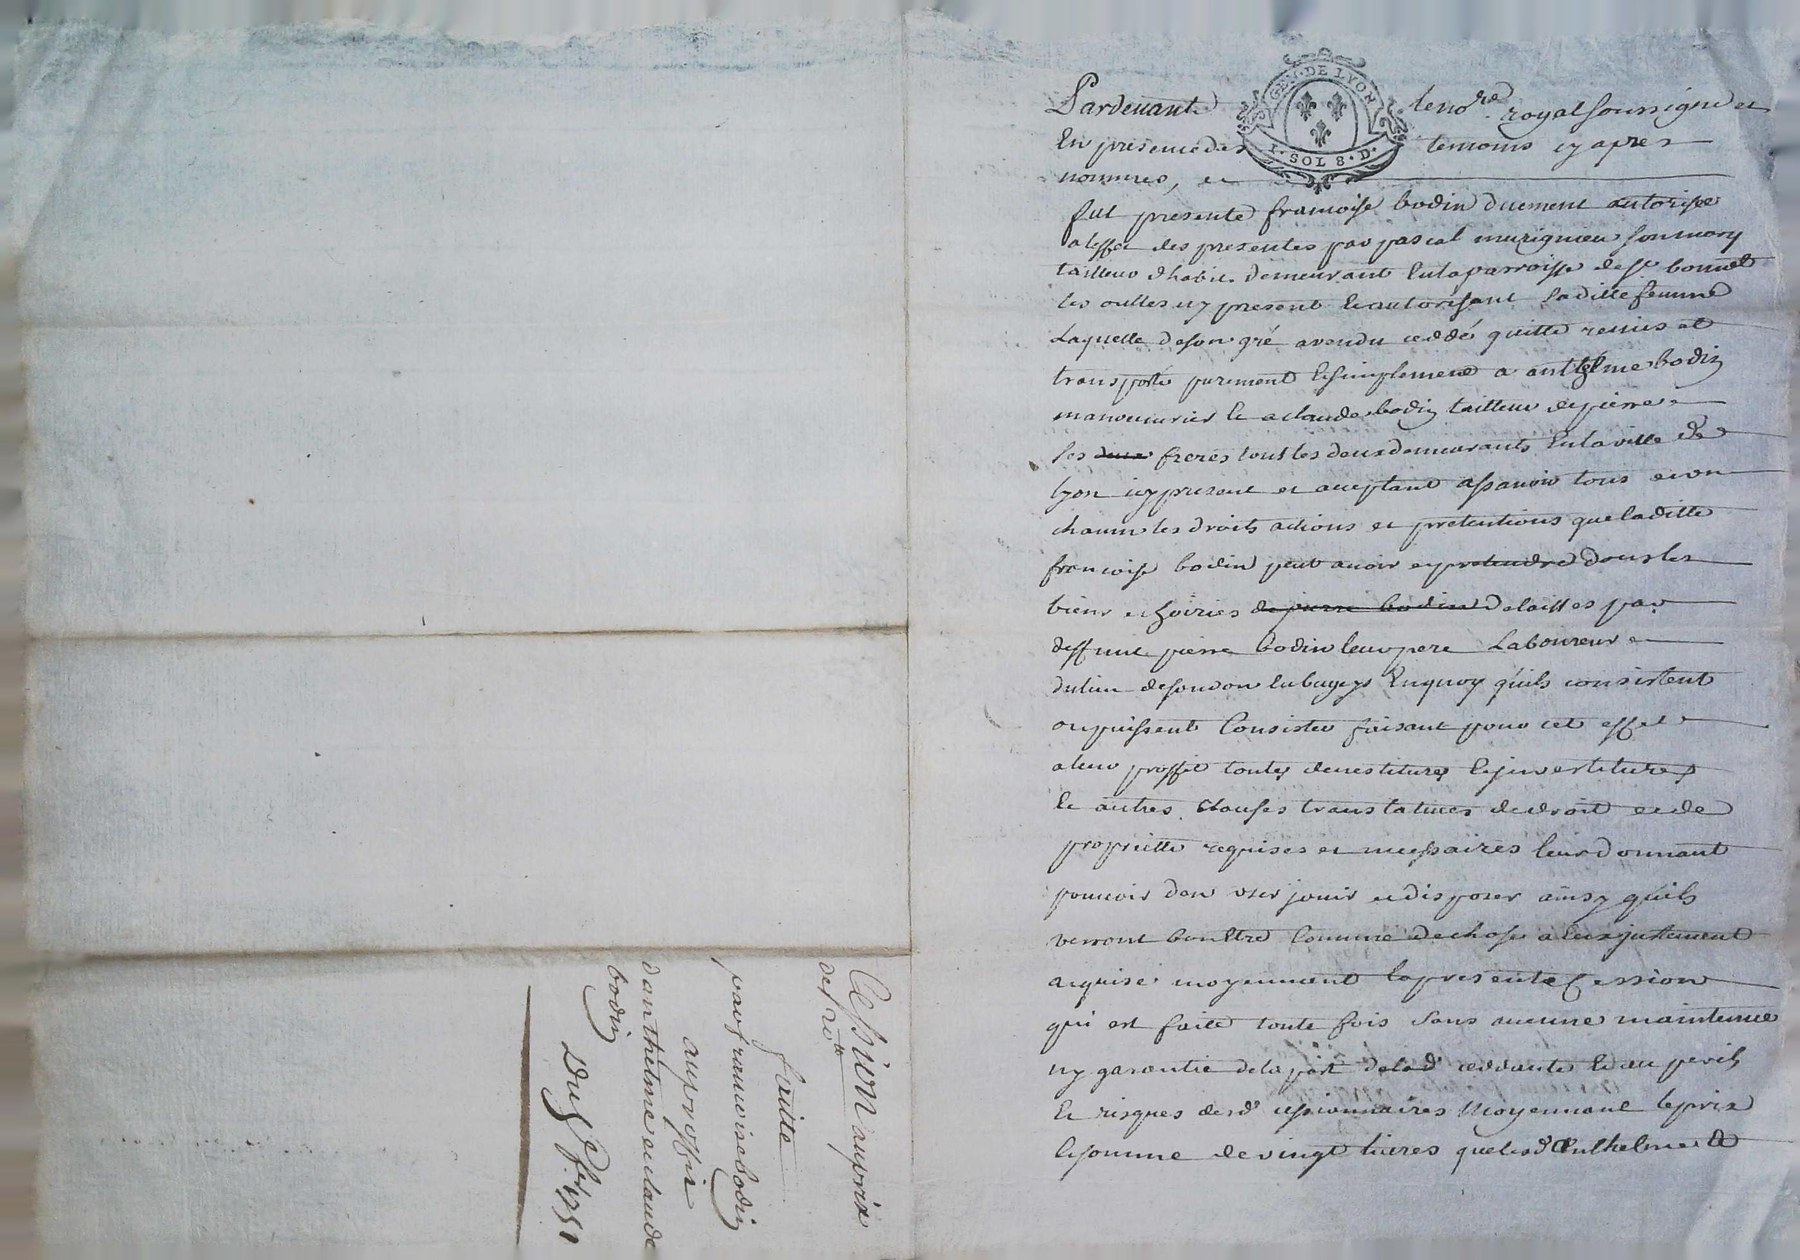 GEN. DE LYON
1. SOL 8. D.
Pardevant le no.re royal soussigné et
En presence des temoins cy apres
nommes, et
fut presente francoise bodin duement autorisée
a leffet des presentes par pascal murignieu son mary
tailleur dhabit demeurant En la parroisse de st bonnet
les oulles icy present Et autorisant Laditte femme
Laquelle de son gré a vendu ceddé quitte remis et
transporté purement Et simplement a anthelme bodin
manouvrier Et a claude bodin tailleur de pierre
ses deux freres tout les deux demeurants En la ville de
lyon icy present et acceptant assavoir tous et un
chacun les droits actions et pretentions que laditte
francoise bodin peut avoir et pretendre dans les
biens et hoiries de pierre bodin delaisses par
deffunt pierre bodin leur pere Laboureur
du lieu de soudon En bugeys En quoy quils consistent
ou puissent Consister faisant pour cet effet
a leur proffit toutes devestitures Et investitures
Et autres Clauses translatives de droit et de
propriette requises et necessaires leur donnant
pouvoir den user jouir et disposer ainsy quils
verront bon Etre Comme de chose a Eux justement
acquise moyennant la presente Cession
qui est faite toute fois sans aucune maintenue
ny garantie de la part de lad.e ceddante Et au perils
Et risques des d. cessionnaires Moyennant le prix
Et somme de vingt livres que les d. Anthelme et
Cession au prix
de 20 tt
faite
par francoise bodin
au proffit
danthelme et claude
bodin
Du 5 7bre 1751